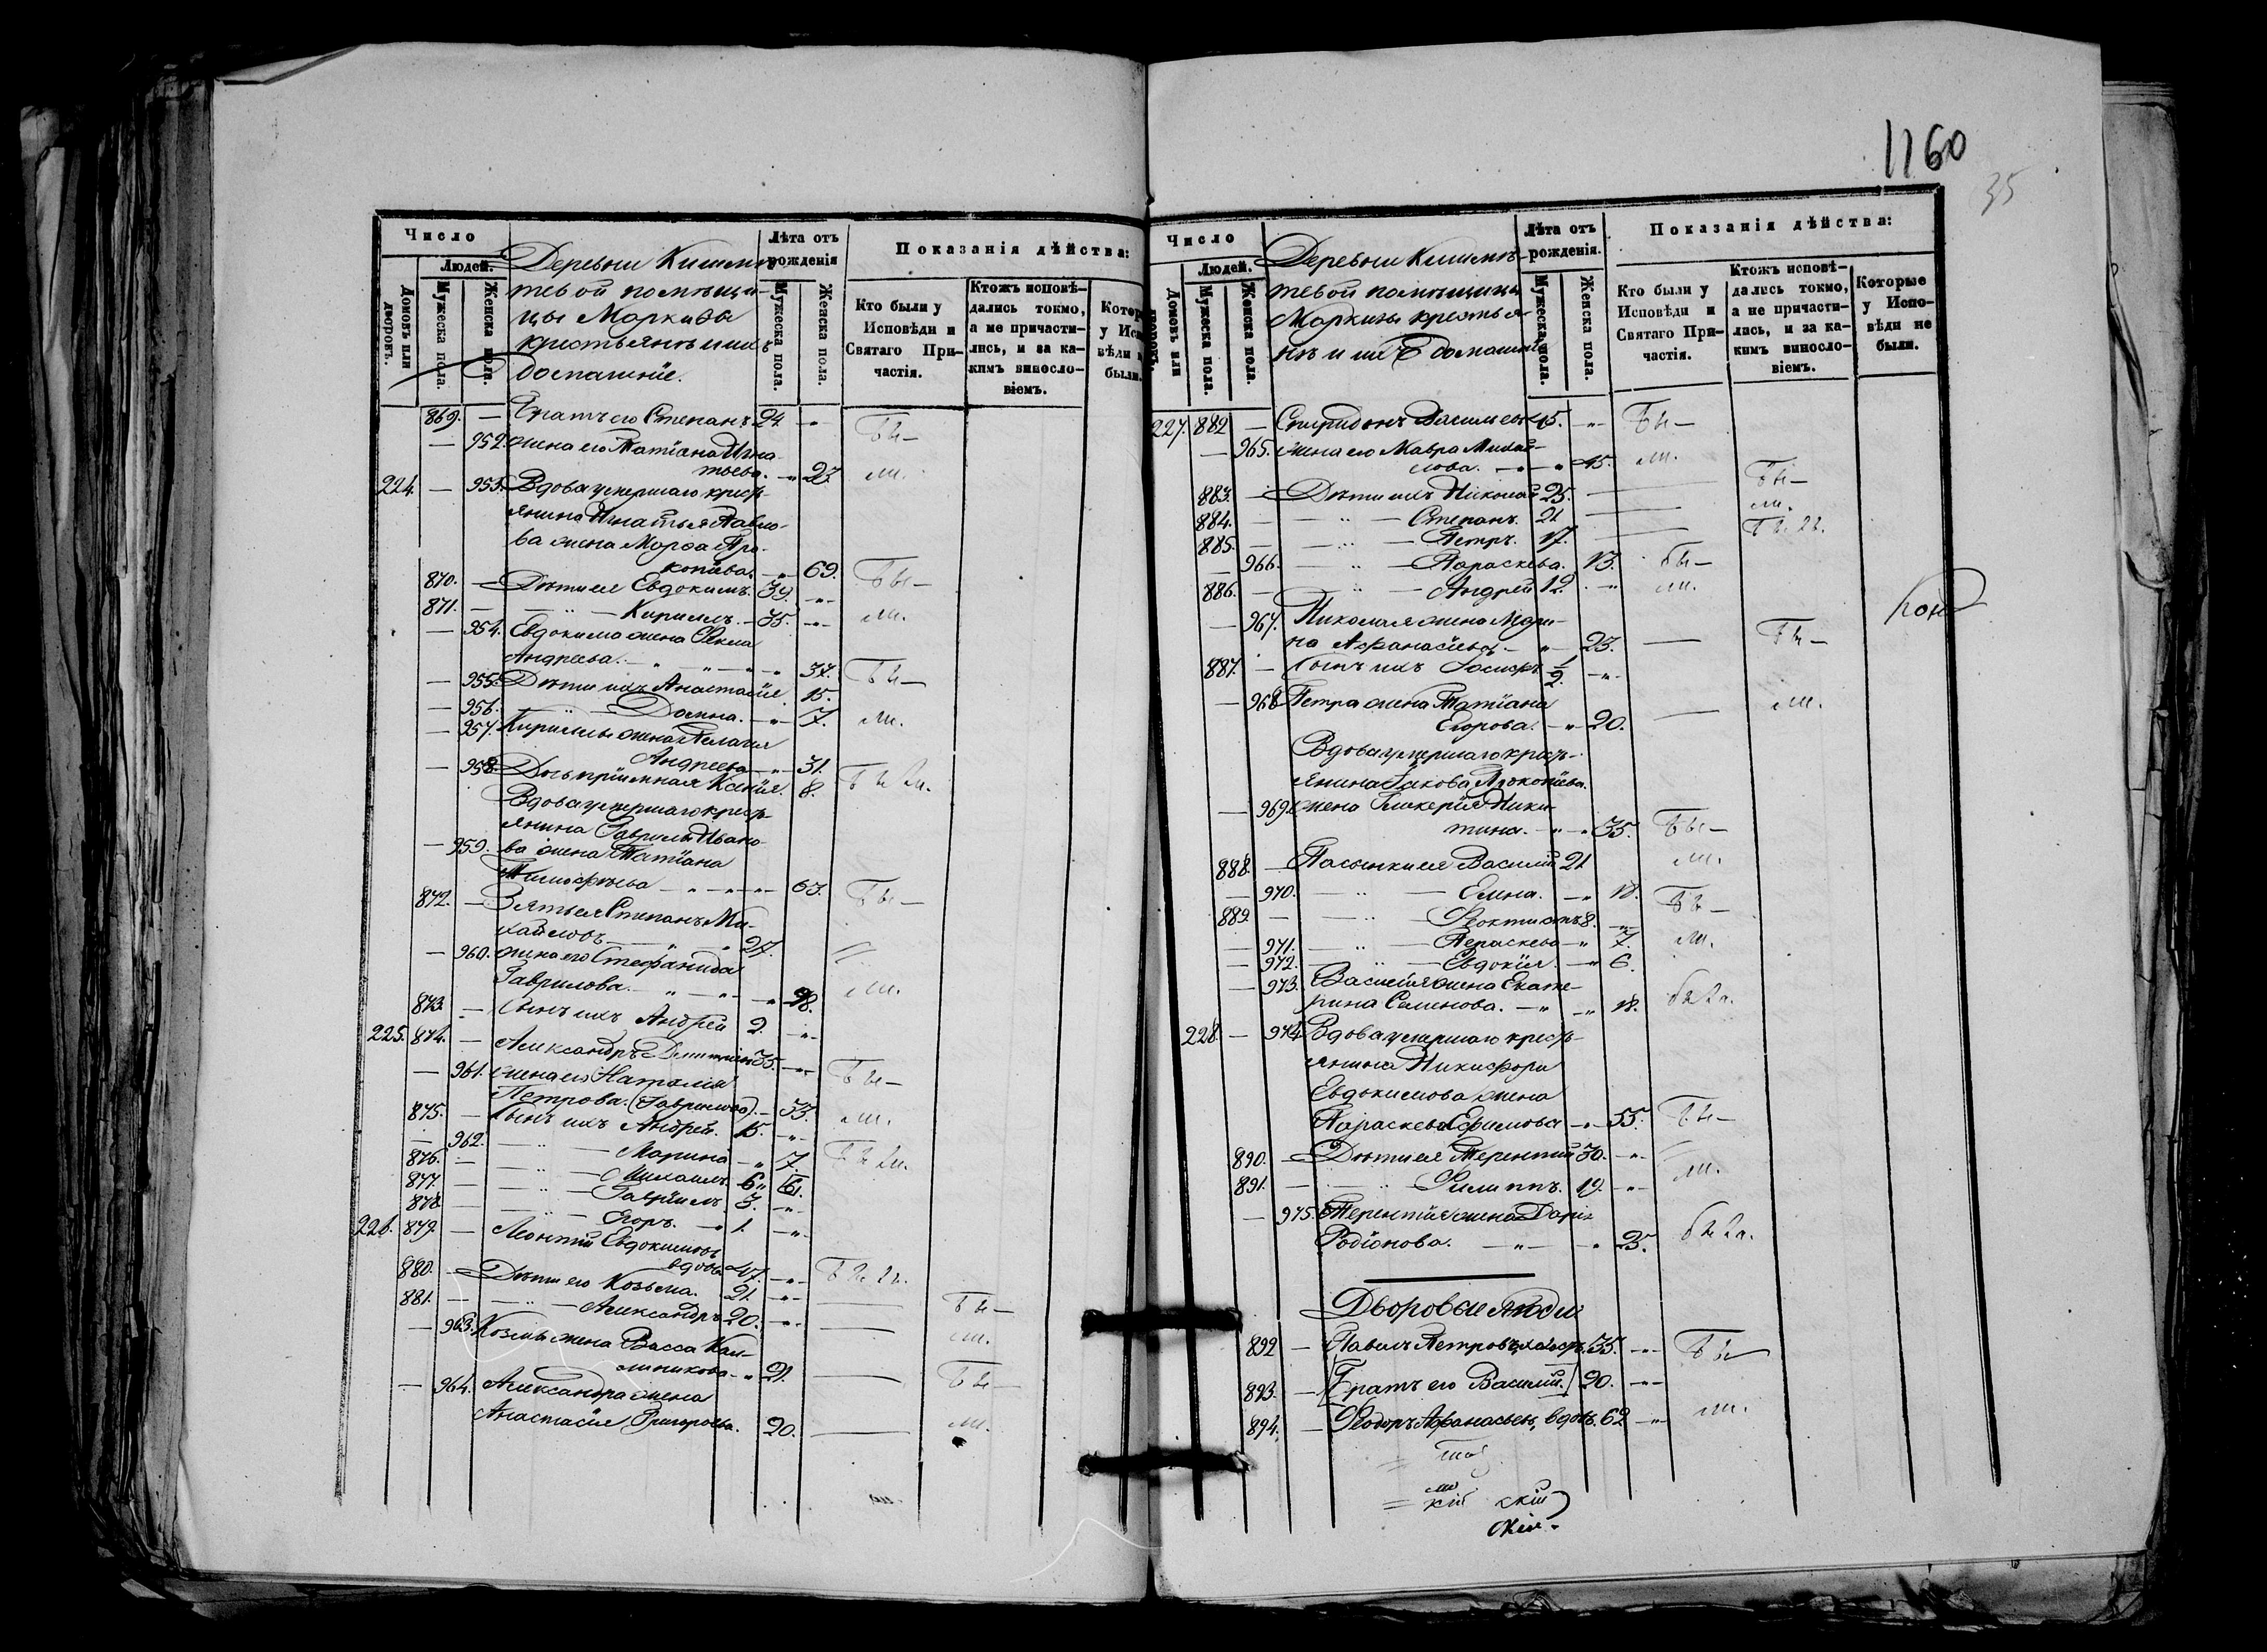 1160
35
Число
Людей.
Домовъ или дворовъ.
Мужеска пола.
Женска пола.
Деревни
тевой помѣщи-
цы Маркизы
крестьянъ и ихъ
домашніе.
Лѣта отъ рожденія
Мужеска пола.
Женска пола.
Показанія дѣйства:
Кто были у Исповѣди и Святаго Причастія.
Ктожъ исповѣдались токмо, а не причастились, и за какимъ винословіемъ.
869. — Братъ его Степанъ 24 -"-
— 952. жена его Татіана Игна-
тьева. -"- 27.
224. — 953. Вдова умершаго кресть-
янина Игнатья Павло-
ва жена Марѳа Про-
копіева. -"- 69.
870. — Дѣти ея Евдокимъ. 39. -"-
871. — -"- Кириллъ. 35. -"-
— 954. Евдокима жена Ѳекла
Андреева. -"- 37.
— 955. Дѣти ихъ Анастасія 15.
— 956. -"- Домна. -"- 7.
— 957. Кирилла жена Пелагія
Андреева -"- 31.
— 958. Дочь пріемная Ксенія. 8.
Вдова умершаго кресть-
янина Гаврилы Ивано-
— 959. ва жена Татіана
Тимоѳѣева -"- 63.
872. — Зять ея Степанъ Ми-
хайловъ -"- 27.
— 960. жена его Стефанида
Гаврилова. -"-
873. — Сынъ ихъ Андрей 2. -"-
225. 874. — Александръ Дмитріевъ 35. -"-
— 961. жена его Наталія
Петрова. (Гаврилова). — 33.
875. — Сынъ ихъ Андрей. 15. -"-
— 962. -"- Марина -"- 7.
876. — -"- Михаилъ. 6
877. — -"- Гавріилъ 3. -"-
878 — -"- Егоръ. 1. -"-
226. 879. — Леонтій Евдокимовъ
вдовъ 47. -"-
880. — Дѣти его Козьма. 21. -"-
881. — -"- Александръ 20. -"-
— 963. Козмы жена Васса Кал-
линикова -"- 21.
— 964. Александра жена
Анастасія Григорьева. 20.
Число
Людей.
Домовъ или дворовъ.
Мужеска пола.
Женска пола.
Деревни
тевой помѣщицы
Маркизы крестья-
нъ и ихъ домашніе
Лѣта отъ рожденія.
Мужеска пола.
Женска пола.
Показанія дѣйства:
Кто были у Исповѣди и Святаго Причастія.
Ктожъ исповѣдались токмо, а не причастились, и за какимъ винословіемъ.
Которые у Исповѣди не были.
227. 882 — Спиридонъ Васильевъ 45. -"-
— 965. жена его Мавра Михай-
лова. -"- 45.
883. — Дѣти ихъ Николай 25.
884. — -"- Степанъ. 21
885. — -"- Петръ. 17.
— 966. -"- Параскева. 13.
886. — -"- Андрей 12. -"-
— 967. Николая жена Мари-
на Афанасьева -"- 23.
887. — Сынъ ихъ Іосифъ 1/2. -"-
— 968 Петра жена Татіана
Егорова. -"- 20.
Вдова умершаго кресть-
янина Іакова Прокопіева.
— 969. жена Гликерія Ники-
тина. -"- 35.
888. — Пасынки ея Василій 21
— 970. -"- Елена. -"- 18.
889. — -"- Ѳеоктистъ 8. -"-
— 971. -"- Параскева -"- 7.
— 972. -"- Евдокія. -"- 6.
— 973. Василія жена Екате-
рина Семенова. -"- 18.
228. — 974. Вдова умершаго кресть-
янина Никифора
Евдокимова жена
Параскева Ефимова -"- 55.
890. — Дѣти ея Терентій 30. -"-
891. — -"- Филиппъ. 19. -"-
— 975. Терентія жена Дарія
Родіонова. -"- 25.
Дворовые люди
892 — Павелъ Петровъ, холост. 35. -"-
893. — Братъ его Василій. 20. -"-
894. — Ѳеодоръ Афанасьевъ, вдовъ. 62 -"-